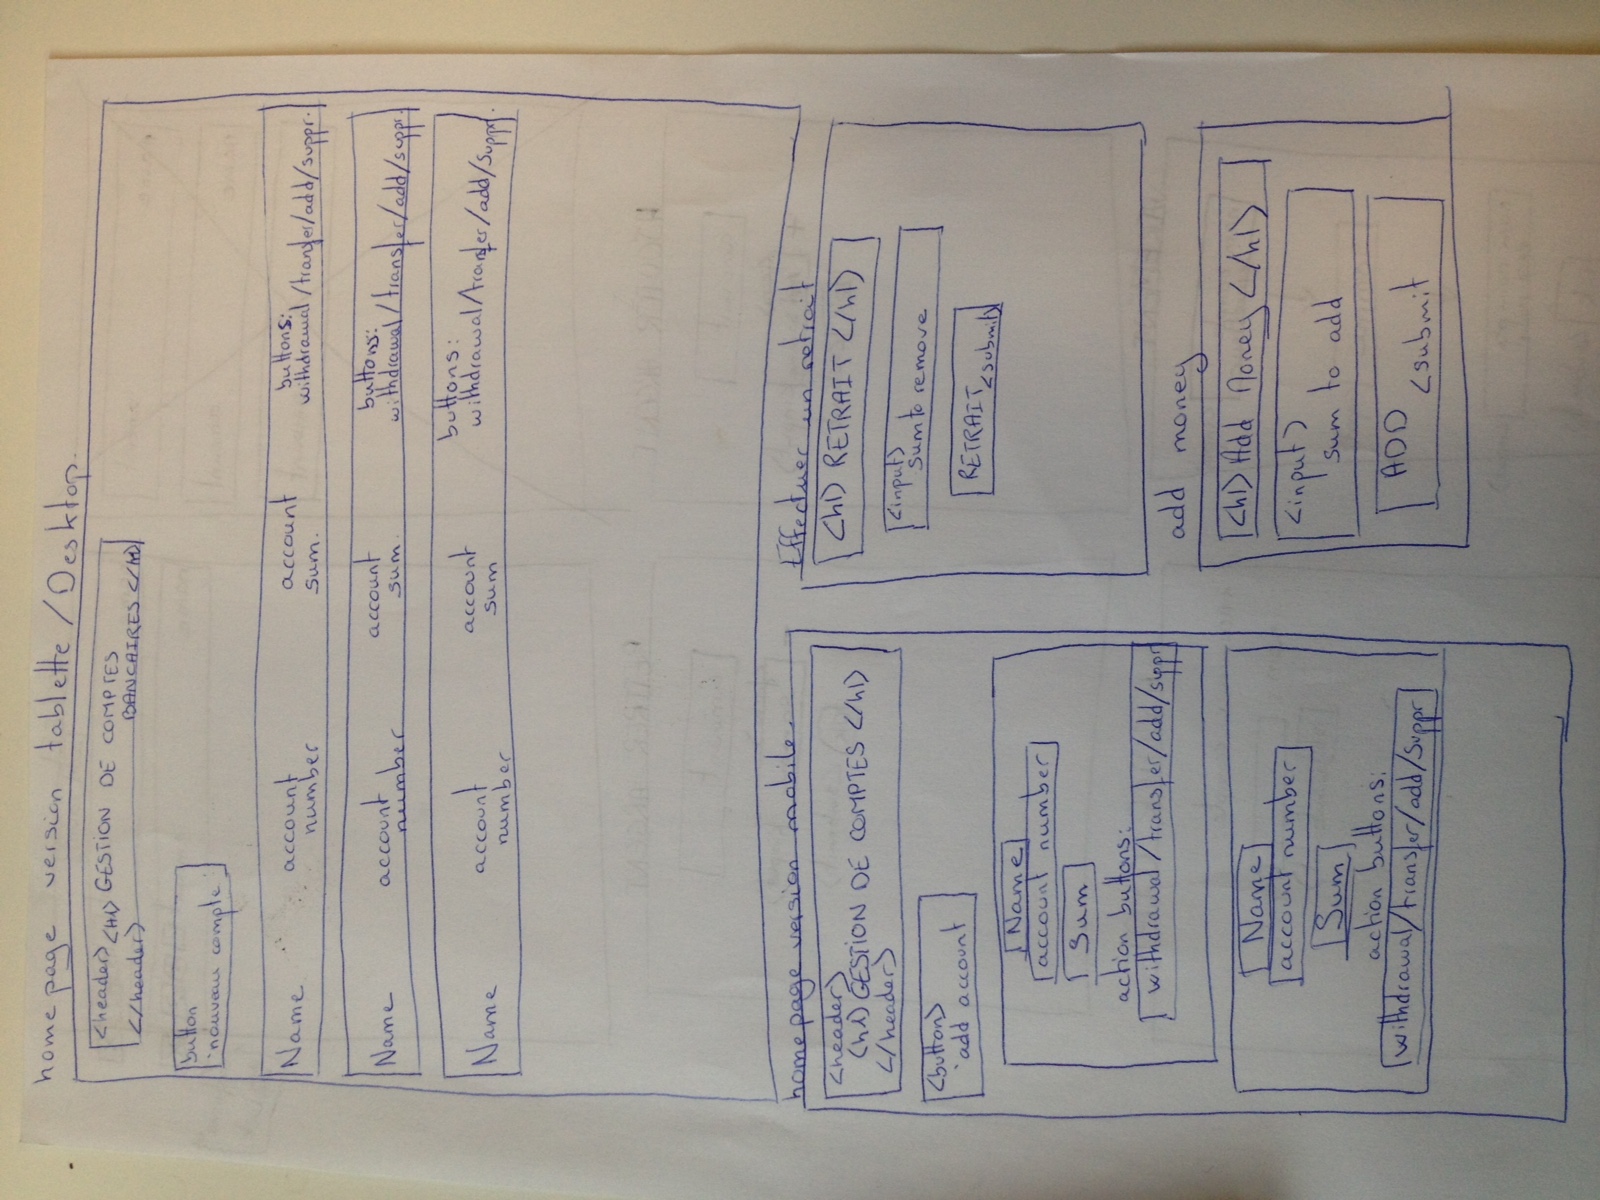 homepage version tablette / Desktop.
<header> <H1> GESTION DE COMPTES
</header> BANCAIRES </h1>
button
'nouveau compte'
Name account account buttons:
number sum. withdrawal/transfer/add/suppr.
Name account account buttons:
number sum. withdrawal/transfer/add/suppr.
Name account account buttons:
number sum withdrawal/transfer/add/suppr.
homepage version mobile.
<header>
<h1> GESTION DE COMPTES </h1>
</header>
<button>
'add account
Name
account number
Sum
action buttons:
withdrawal/transfer/add/suppr
Name
account number
Sum
action buttons:
withdrawal/transfer/add/suppr
Effectuer un retrait
<h1> RETRAIT </h1>
<input>
sum to remove
RETRAIT <submit>
add money
<h1> Add Money </h1>
<input>
sum to add
ADD
<submit
RETIRER ARGENT
AJOUTER ARGENT